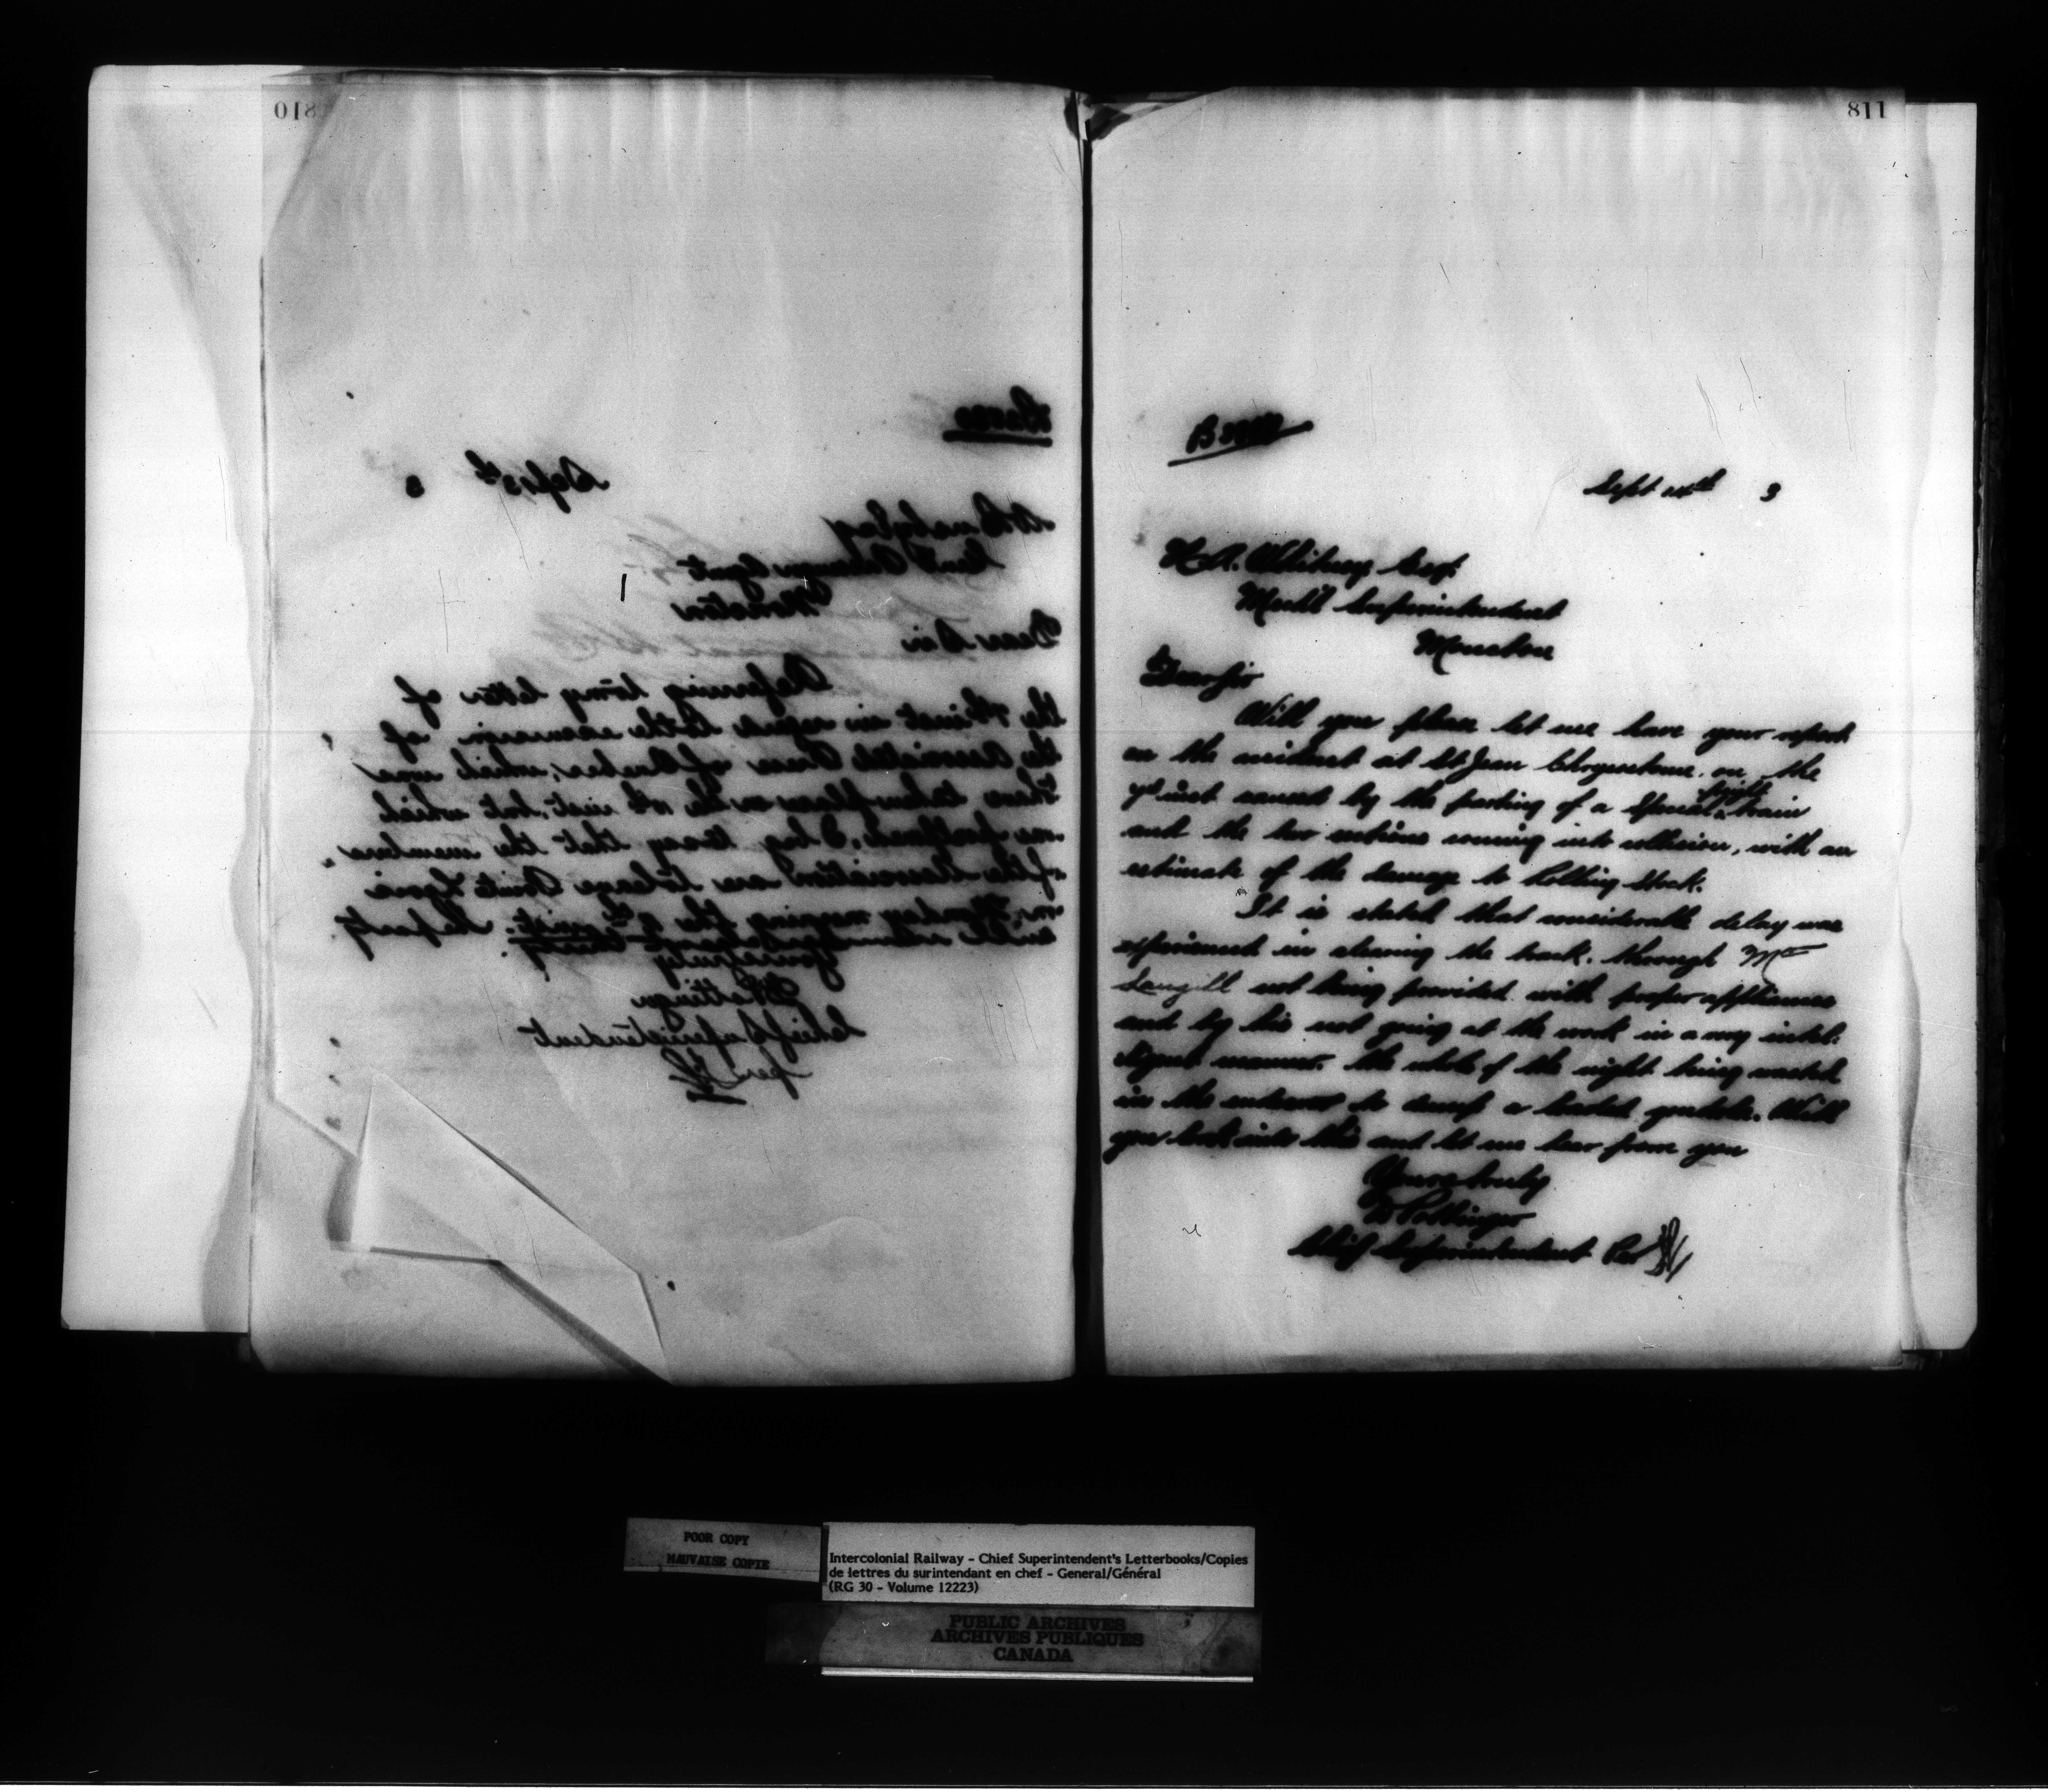 810
Sept 13th 3
Esq
Genl Passenger Agent
Moncton
Dear Sir
Referring to my letter of
the inst in regard to the excursion of
the Associated Press of Quebec, which was
to have taken place on the inst, but which
was postponed, I beg to say that the members
of the Association are to leave Point Levis
on Monday morning the
Yours truly
D Pottinger
Chief Superintendent
per
811
Sept 14th 3
H. A. Whitney Esq.
Mechl Superintendent
Moncton
Dear Sir
Will you please let me have your report
on the accident at St Jean Chrysostome on the
inst caused by the parting of a Special freight train
and the two sections coming into collision, with an
estimate of the damage to Rolling Stock.
It is stated that considerable delay was
experienced in clearing the track, through Mr
not being provided with proper appliances
and by his not going at the work in a very intel-
ligent manner. the whole of the night being wasted
in the endeavor to dump a loaded gondola. Will
you look into this and let me hear from you
Yours truly
D Pottinger
Chief Superintendent Per
POOR COPY
MAUVAISE COPIE
Intercolonial Railway - Chief Superintendent's Letterbooks/Copies
de lettres du surintendant en chef - General/Général
(RG 30 - Volume 12223)
PUBLIC ARCHIVES
ARCHIVES PUBLIQUES
CANADA